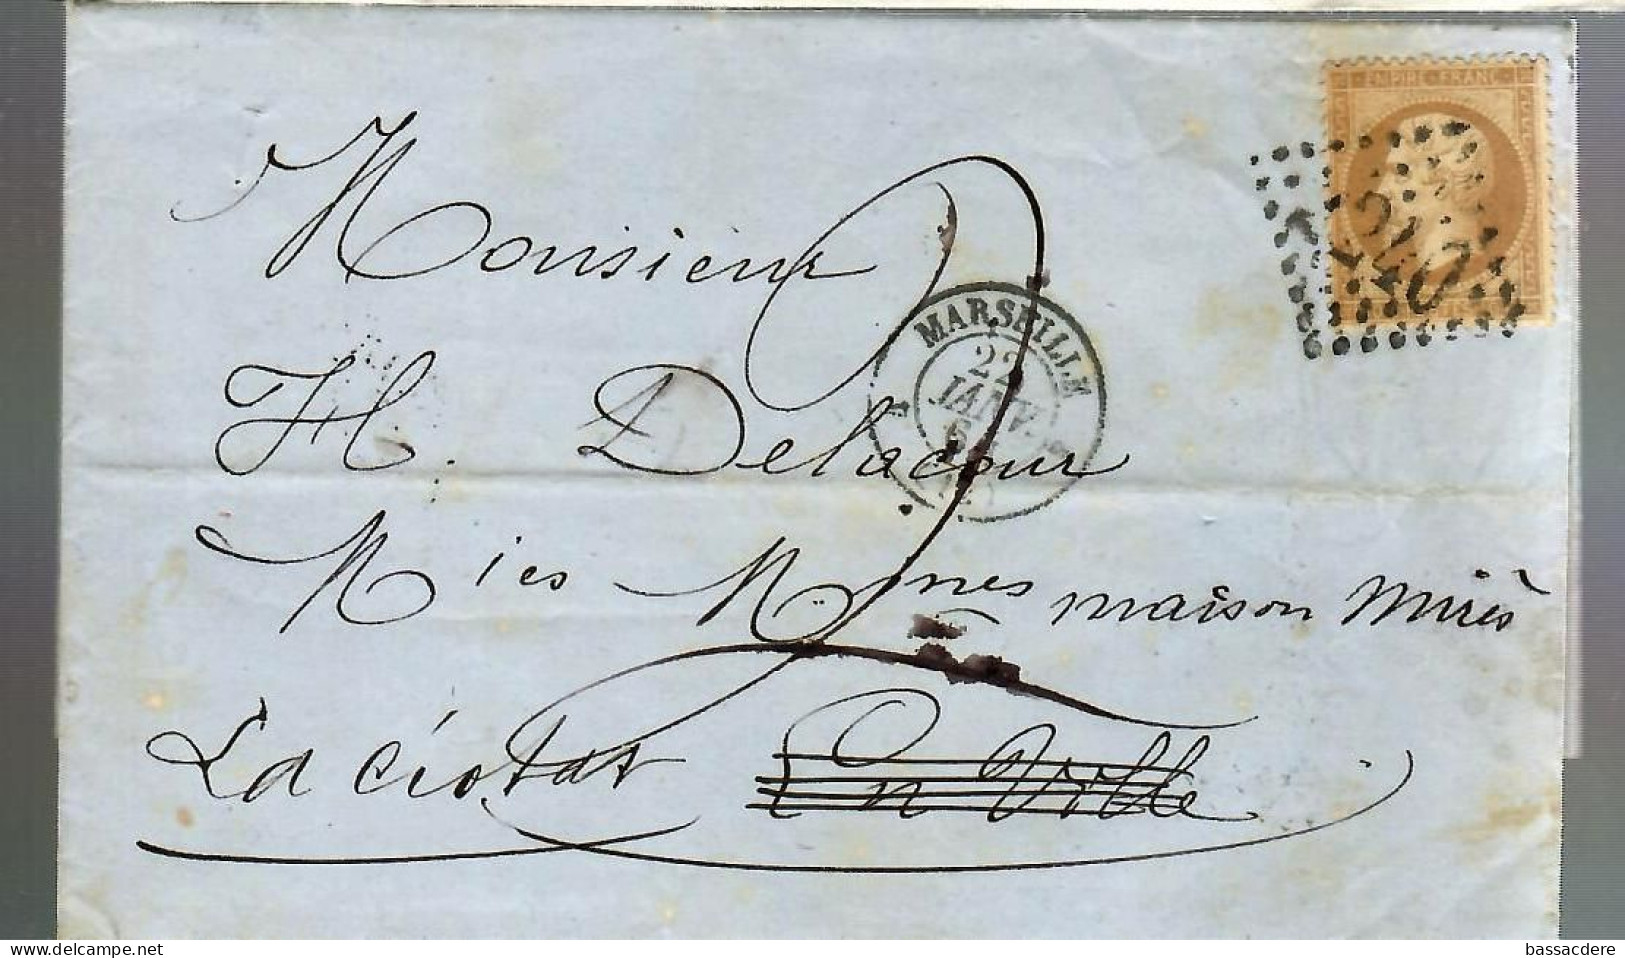 EMPIRE FRANC
2240
Monsieur
MARSEILLE
22
JANV.
H. Delacour
Mies Mmes maison Mirès
La Ciotat En Ville
www.delcampe.net
bassacdere